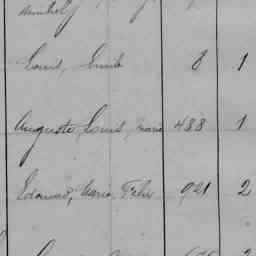 Louis, Emile 8 1
Auguste, Louis, Marie 488 1
Edouard, Marie, Félix 921 2